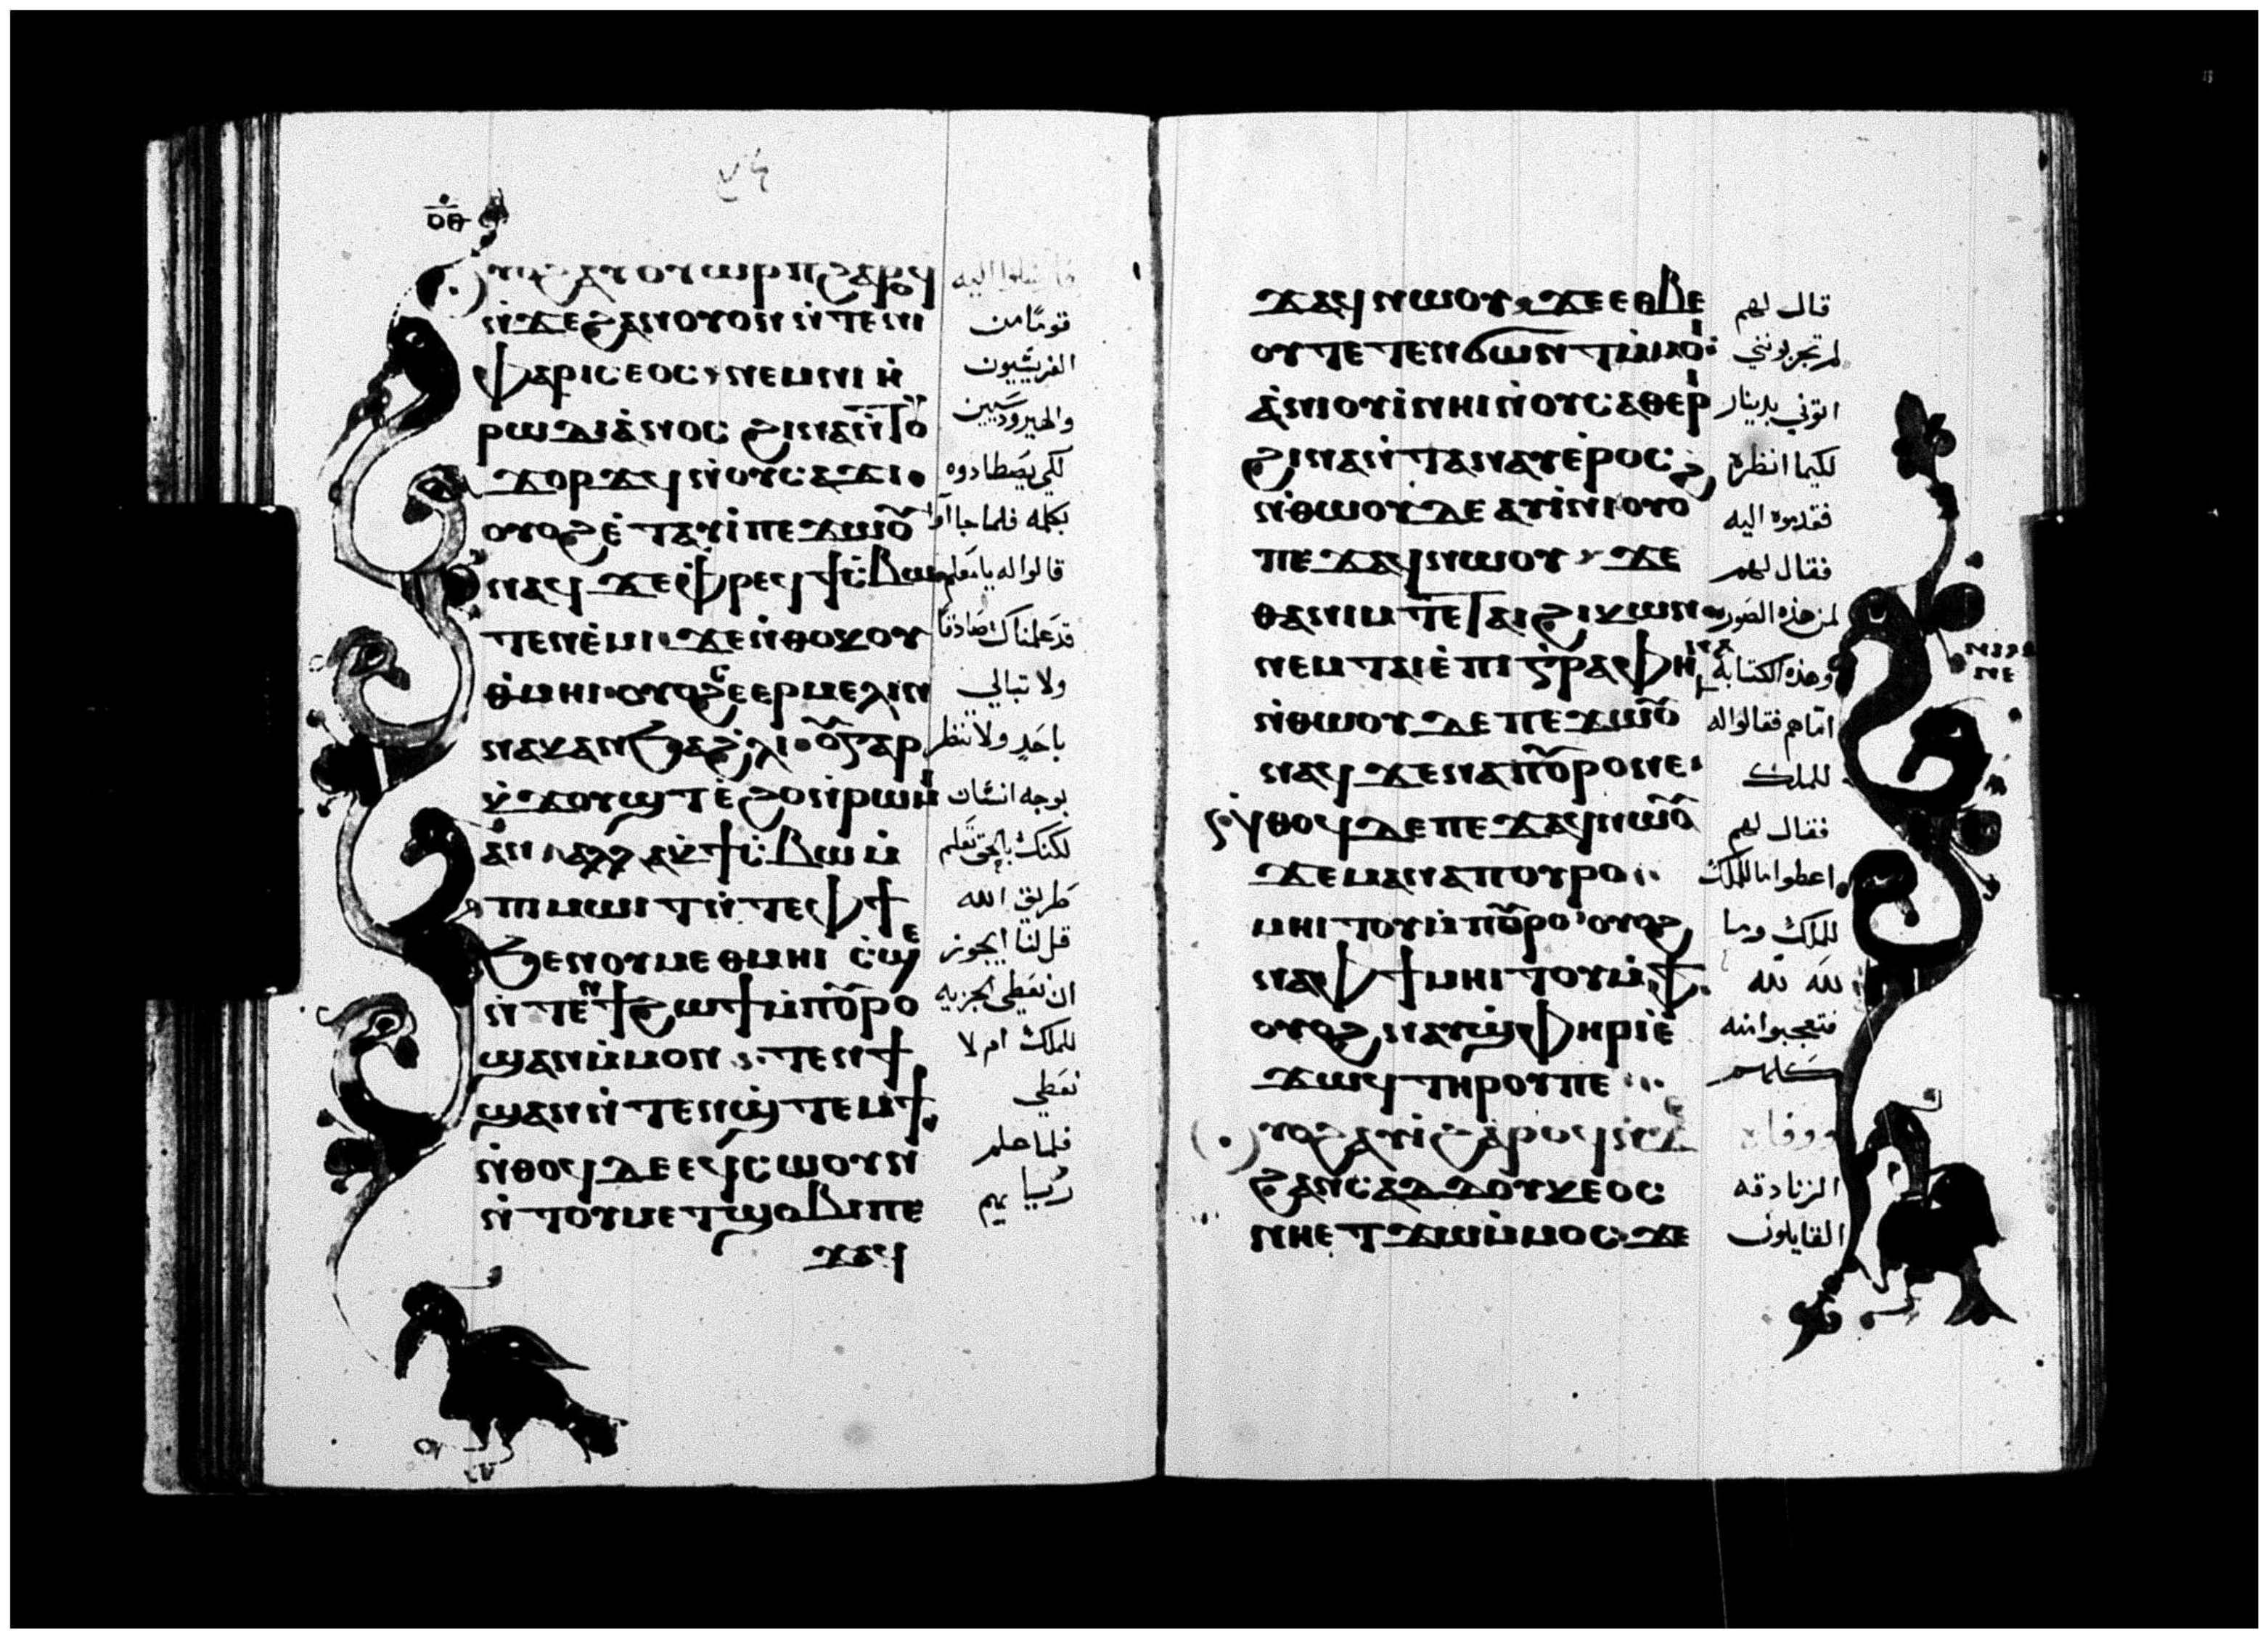 ⲟ̅ⲑ̅
ⲩⲟϩⲁⲩⲟⲩⲱⲣⲡϩⲁⲣⲟϥ
ⲛ̀ϫⲉϩⲁⲛⲟⲩⲟⲛ ⲛ̀ⲧⲉⲛⲓ
ⲫⲁⲣⲓⲥⲉⲟⲥ ⲛⲉⲙⲛⲓⲏ̀
ⲣⲱⲇⲓⲁ̀ⲛⲟⲥ ϩⲓⲛⲁⲛ̀ⲧⲟ̅ⲩ̅
ϫⲟⲣϫϥ ⲛ̀ⲟⲩⲥⲁϫⲓ
ⲟⲩⲟϩ ⲉ̀ⲧⲁⲩⲓ̀ ⲡⲉϫⲱⲟⲩ
ⲛⲁϥ ϫⲉⲫⲣⲉϥϯⲥ̀ⲃⲱ
ⲧⲉⲛⲉ̀ⲙⲓ ϫⲉⲛ̀ⲑⲟⲕⲟⲩ
ⲑ̀ⲙⲏⲓ ⲟⲩⲟϩ ⲥⲉⲣⲙⲉⲗⲓⲛ
ⲛⲁⲕⲁⲛϧⲁϩ̀ⲗⲓ ⲟⲩⲅⲁⲣ
ⲕ̀ϫⲟⲩϣⲧ ⲉ̀ϩⲟⲛ̀ⲣⲱⲙⲓ
ⲁⲛ ⲁⲗⲗⲁⲕ̀ϯⲥ̀ⲃⲱ ⲙ̀
ⲡⲓⲙⲱⲓⲧ ⲛ̀ⲧⲉⲫϯ
ϧⲉⲛⲟⲩⲙⲉⲑⲙⲏⲓ ⲥ̀ϣⲉ
ⲛ̀ⲧⲉⲛϯϩⲱϯ ⲙ̀ⲡⲟⲩⲣⲟ
ϣⲁⲛⲙ̀ⲙⲟⲛ ⲧⲉⲛϯ
ϣⲁⲛⲛ̀ⲧⲉⲛϣ̀ⲧⲉⲙϯ
ⲛ̀ⲑⲟϥ ⲇⲉⲉϥⲥⲱⲟⲩⲛ
ⲛ̀ⲧⲟⲩⲙⲉⲧϣⲟⲃⲓ ⲡⲉ
ϫⲁϥ
قومًا من
الفريسيون
والهيرودسيين
لكي يصطادوه
بكلمه فلما جاآوا
قالوا له يا معلم
قد علمنا ك صادقا
ولا تبالي
باحد ولا تنظر
بوجه انسان
لكنك بالحق تعلم
طريق الله
قل لنا ايجوز
ان نعطي الجزيه
للملك ام لا
نعطي
فلما علم
رييا يهم
ϫⲁϥ ⲛⲱⲟⲩ ϫⲉⲉⲑⲃⲉ
ⲟⲩ ⲧⲉⲧⲉⲛϭⲱⲛⲧⲙ̀ⲙⲟⲓ
ⲁ̀ⲛⲓⲟⲩⲓ̀ ⲛⲏⲓ ⲛ̀ⲟⲩⲥⲁⲑⲉⲣⲓ
ϩⲓⲛⲁⲛ̀ⲧⲁⲛⲁⲩ ⲉ̀ⲣⲟⲥ
ⲛ̀ⲑⲱⲟⲩ ⲇⲉ ⲁⲩⲓ̀ⲛⲓ ⲟⲩⲟϩ
ⲡⲉϫⲁϥ ⲛⲱⲟⲩ ϫⲉ
ⲑⲁⲛⲓⲙ ⲧⲉ ⲧⲁⲓϩⲓⲕⲱⲛ
ⲛⲉⲙ ⲧⲁⲓⲉ̀ⲡⲓⲅⲣⲁⲫⲏ
ⲛ̀ⲑⲱⲟⲩ ⲇⲉ ⲡⲉϫⲱⲟⲩ
ⲛⲁϥ ϫⲉⲛⲁⲡⲟⲩⲣⲟⲛⲉ
ⲛ̀ⲑⲟϥ ⲇⲉ ⲡⲉϫⲁϥ ⲛⲱⲟⲩ
ϫⲉⲙⲁⲛⲁⲡⲟⲩⲣⲟ
ⲙⲏⲓⲧⲟⲩ ⲙ̀ⲡⲟⲩⲣⲟ ⲟⲩⲟϩ
ⲛⲁⲫϯ ⲙⲏⲓⲧⲟⲩ ⲙ̀ⲫϯ
ⲟⲩⲟϩ ⲛⲁⲩⲉⲣϣ̀ⲫⲏⲣⲓ ⲉ̀
ϫⲱϥ ⲧⲏⲣⲟⲩ ⲡⲉ
ⲩⲟϩ ⲁⲩⲓ̀ ϩⲁⲣⲟϥ ⲛ̀ϫⲉ
ϩⲁⲛⲥⲁⲇⲇⲟⲩⲕⲉⲟⲥ
ⲛⲏⲉⲧϫⲱⲙ̀ⲙⲟⲥ ϫⲉ
قال لهم
لم تجربونني
اتوني بدينار
لكيما انظره
فقدموه اليه
فقال لهم
لمن هذه الصوره
وهذه الكتابه
امّا هم فقالوا له
للملك
فقال لهم
اعطوا ما للملك
للملك وما
لله لله
فتعجبوا منه
كلهم
الزنادقه
القايلون